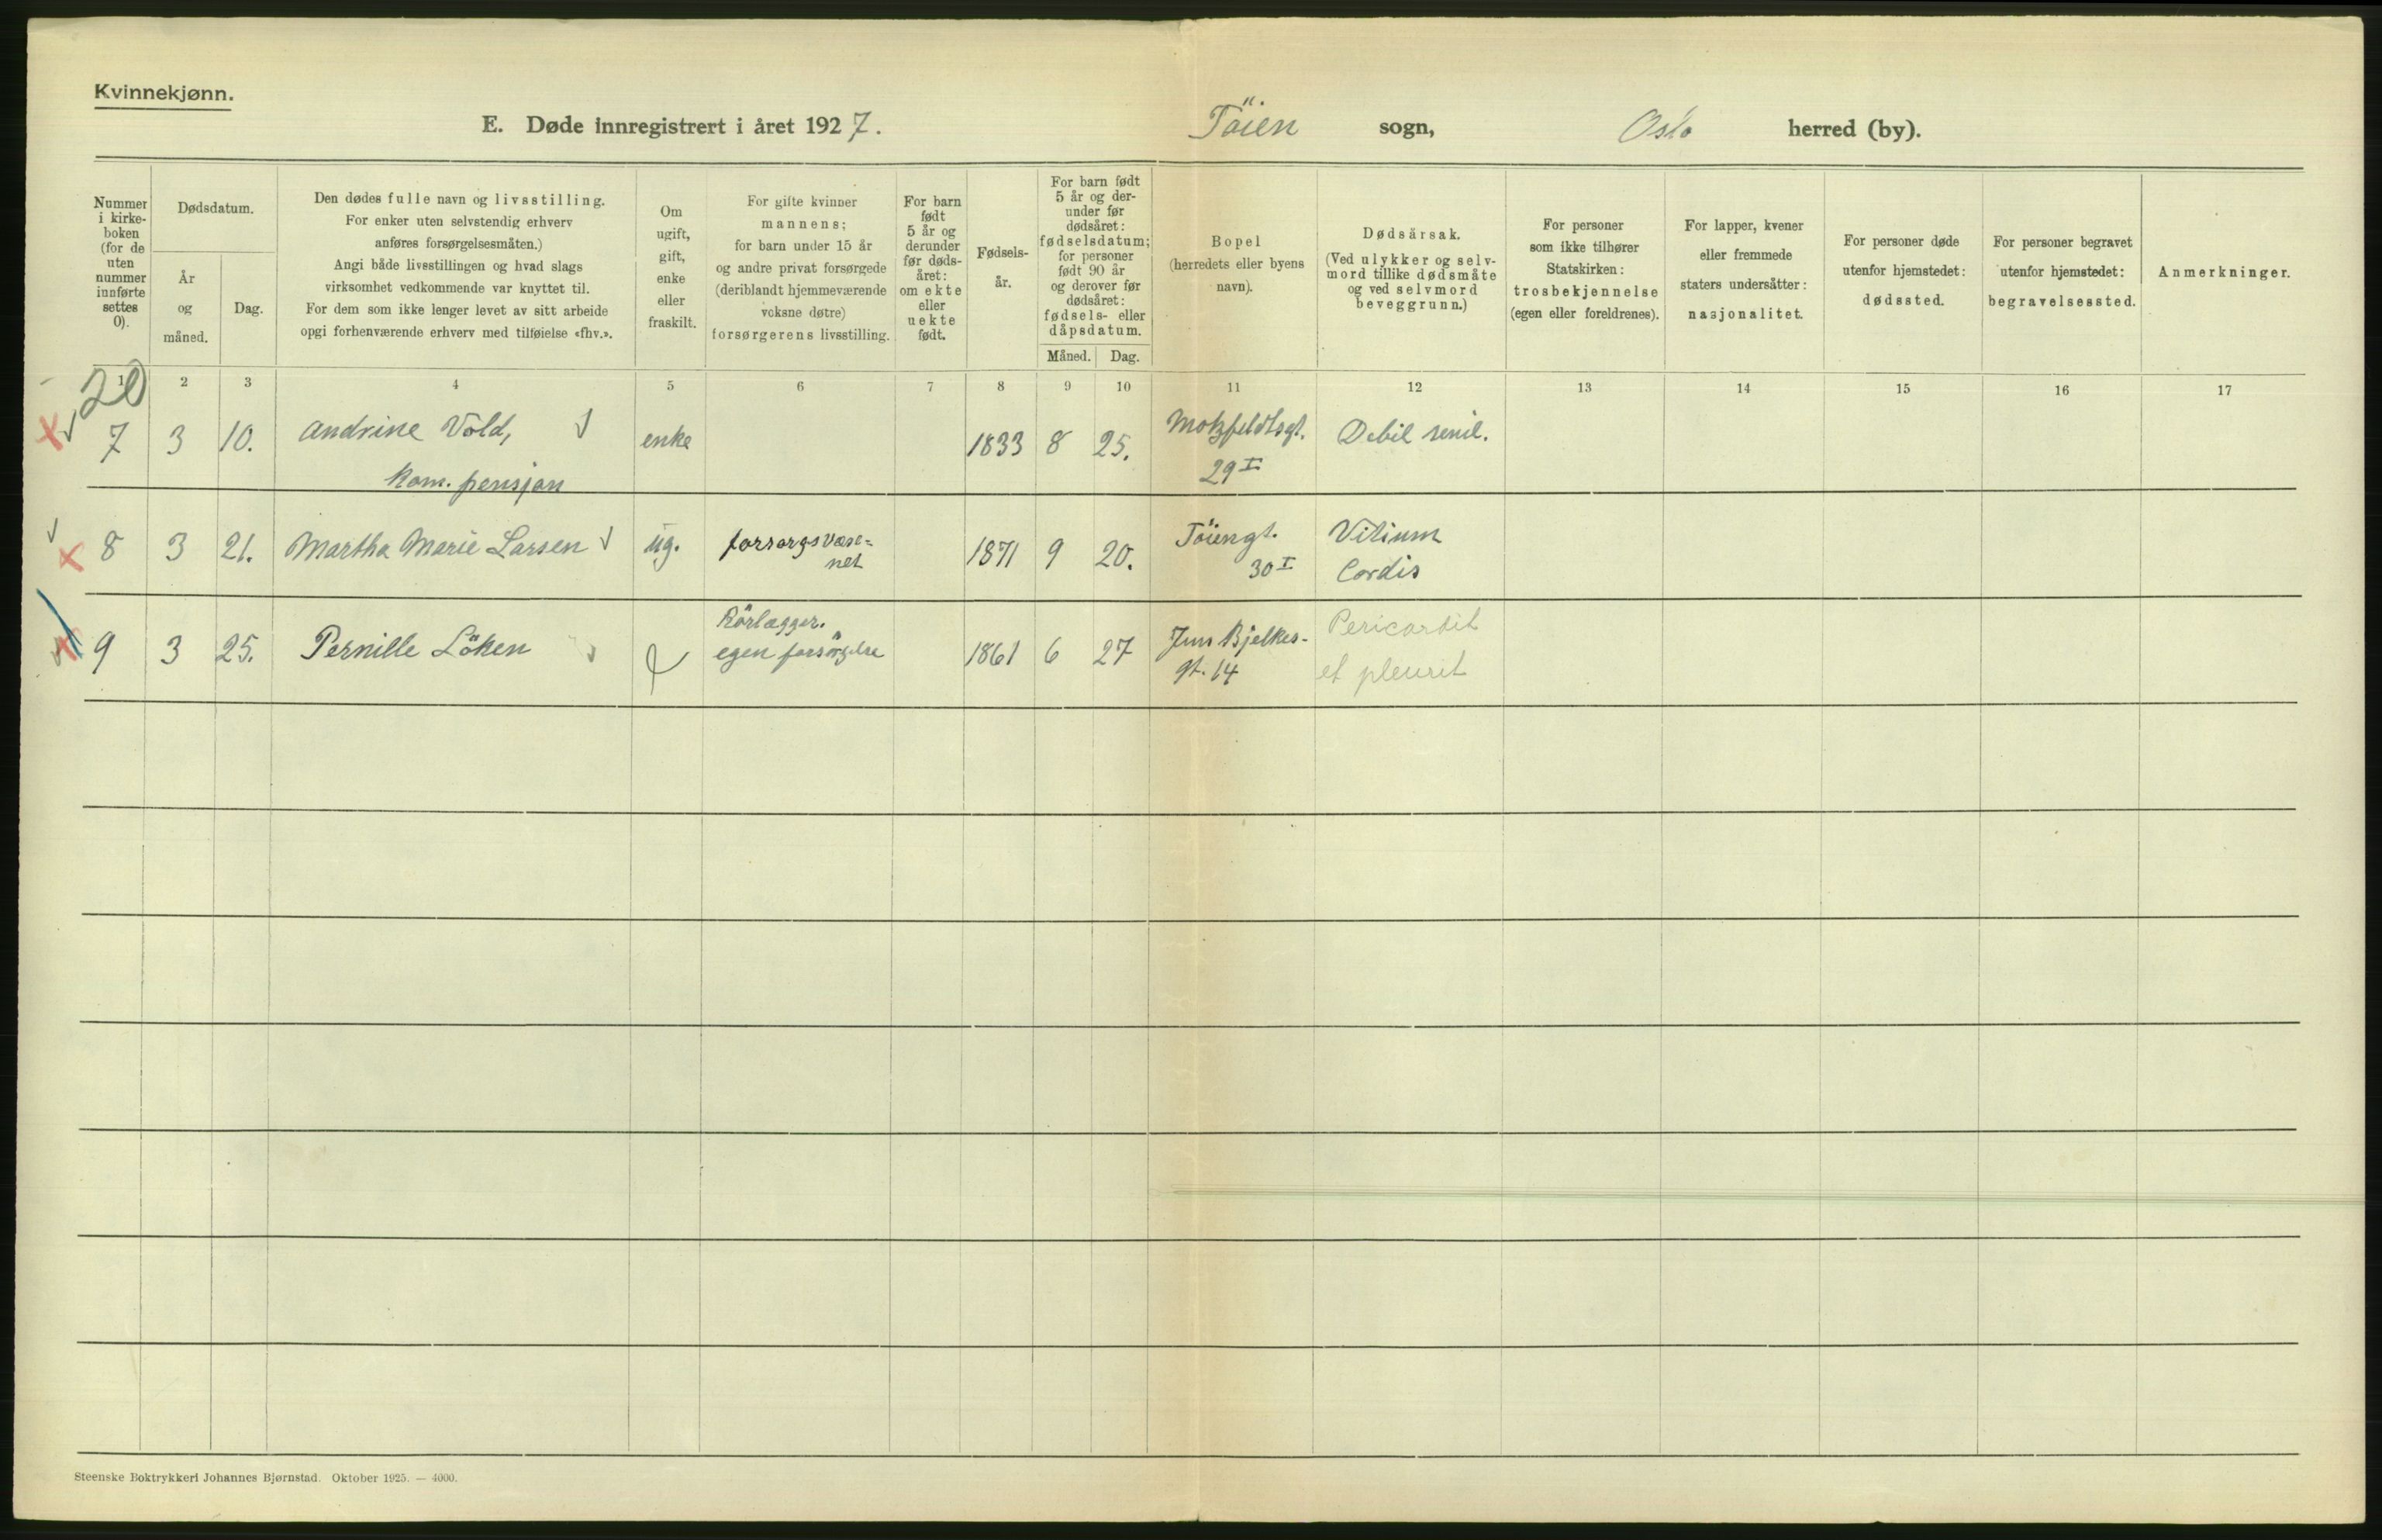 Kvinnekjønn.
E. Døde innregistrert i året 1927. Töien sogn, Oslo herred (by).
Nummer i kirke- boken (for de uten nummer innførte settes 0).
Dødsdatum.
År og måned.
Dag.
Den dødes fulle navn og livsstilling.
For enker uten selvstendig erhverv
anføres forsørgelsesmåten.)
Angi både livsstillingen og hvad slags
virksomhet vedkommende var knyttet til.
For dem som ikke lenger levet av sitt arbeide
opgi forhenværende erhverv med tilføielse «fhv.».
Om ugift, gift, enke eller fraskilt.
For gifte kvinner
mannens;
for barn under 15 år
og andre privat forsørgede
(deriblandt hjemmeværende
voksne døtre)
forsørgerens livsstilling.
For barn født 5 år og derunder før døds- året: om ekte eller uekte født.
Fødsels- år.
For barn født 5 år og der- under før dødsåret: fødselsdatum; for personer født 90 år og derover før dødsåret: fødsels- eller dåpsdatum.
Måned. Dag.
Bopel
(herredets eller byens
navn).
Dødsårsak.
(Ved ulykker og selv-
mord tillike dødsmåte
og ved selvmord
beveggrunn.)
For personer
som ikke tilhører
Statskirken:
trosbekjennelse
(egen eller foreldrenes).
For lapper, kvener
eller fremmede
staters undersåtter:
nasjonalitet.
For personer døde
utenfor hjemstedet:
dødssted.
For personer begravet
utenfor hjemstedet:
begravelsessted.
Anmerkninger.
1 2 3 4 5 6 7 8 9 10 11 12 13 14 15 16 17
20
7 3 10. Andrine Vold, enke 1833 8 25. Motzfeldtsgt. Debil senil.
Kom. pensjon 29 I
8 3 21. Martha Marie Larsen ug. forsorgsvæse= 1871 9 20. Töiengt. Vitium
net 30 I Cordis
9 3 25. Pernille Löken Rörlægger. 1861 6 27 Jens Bjelkes- Pericardit
egen forsörgelse gt. 14 et pleurit
Steenske Boktrykkeri Johannes Bjørnstad. Oktober 1925. — 4000.